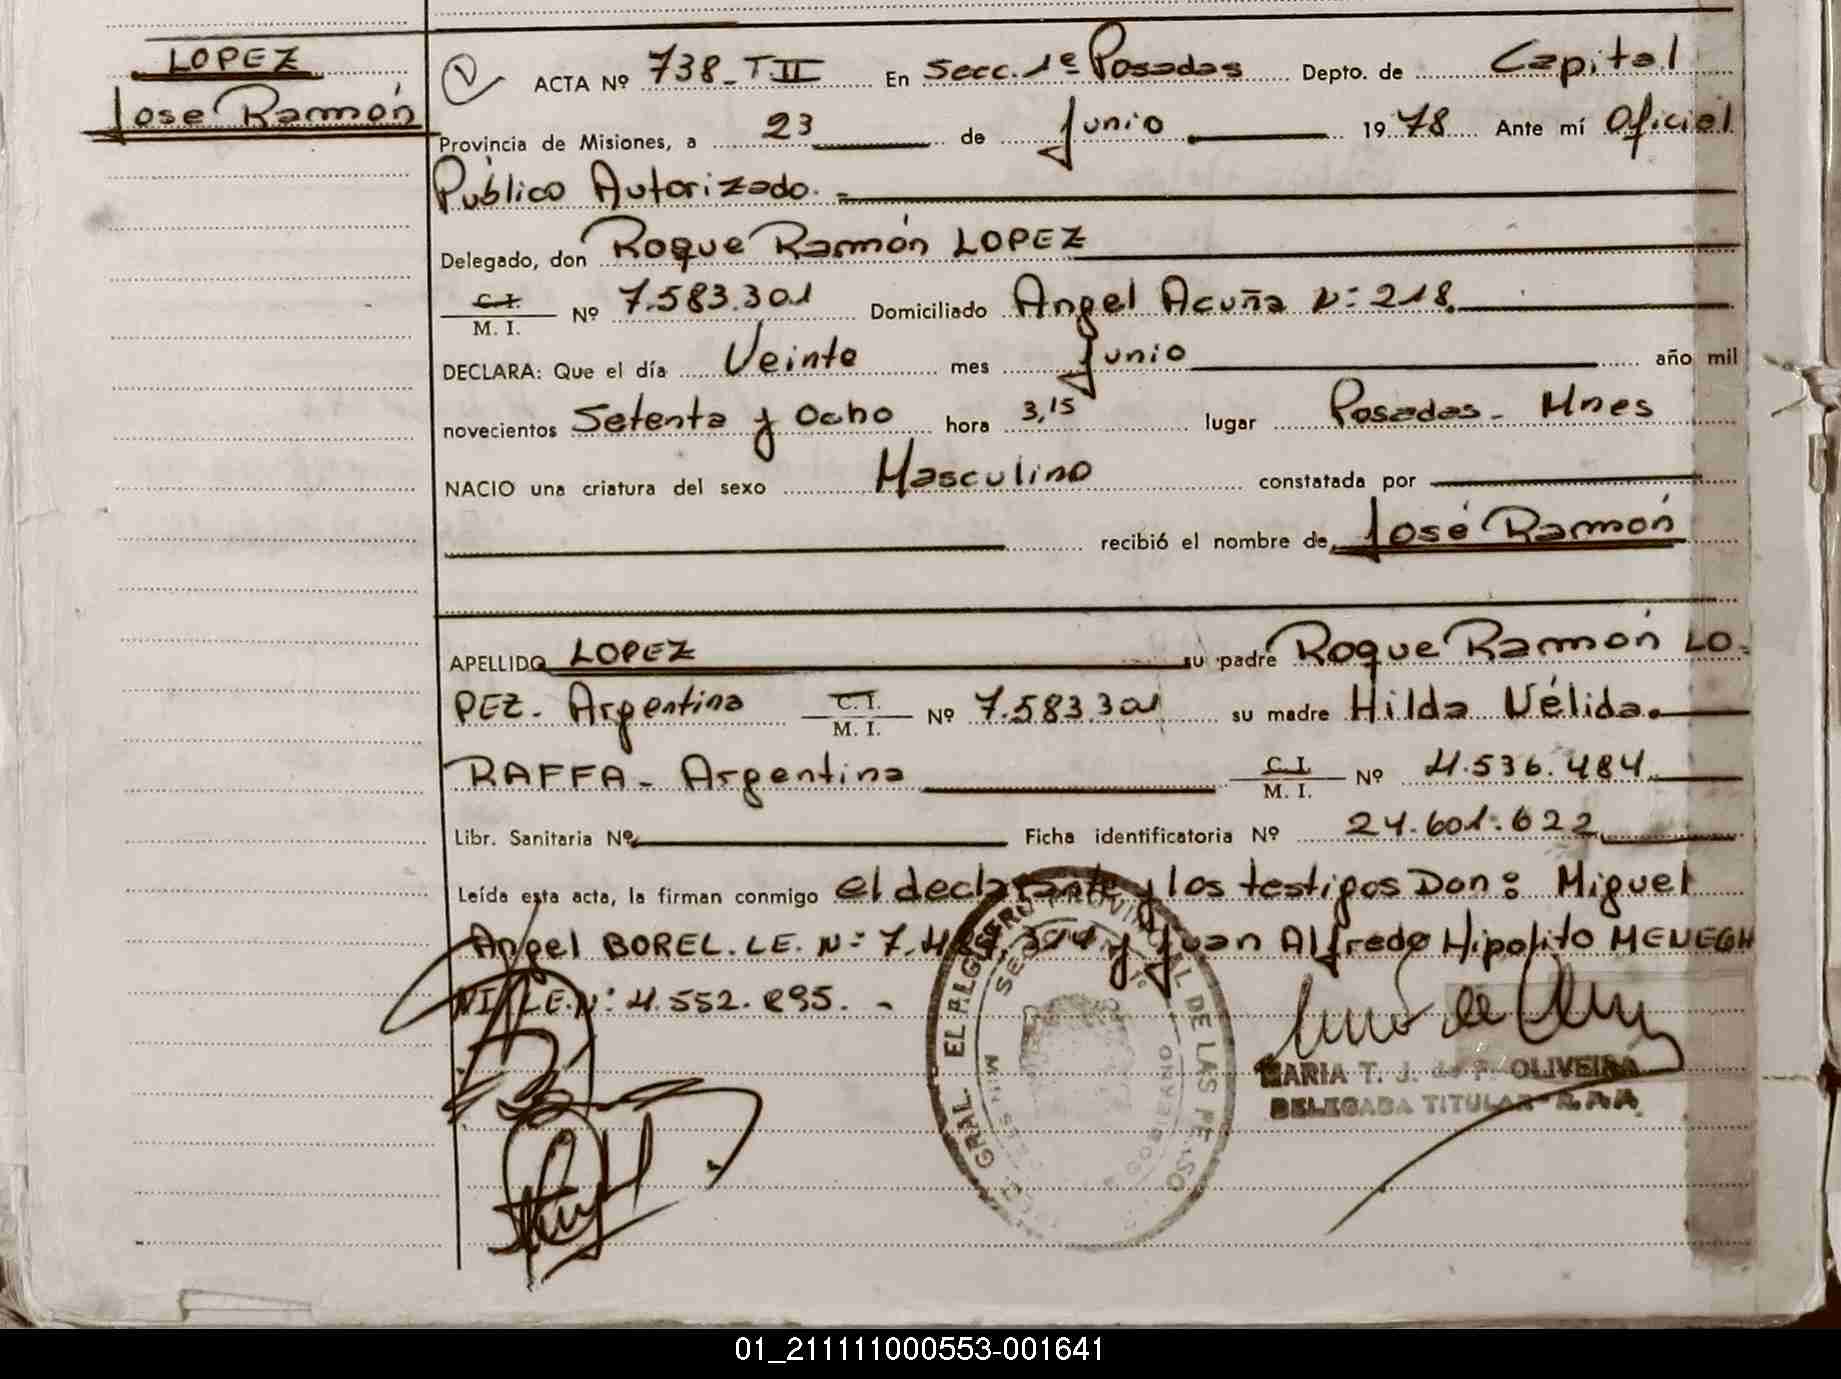 LOPEZ
Jose Ramón
ACTA Nº 738-TII En Secc. 1ª Posadas Depto. de Capital
Provincia de Misiones, a 23 de Junio 1978 Ante mí Oficial
Público Autorizado.-
Delegado, don Roque Ramón LOPEZ
C.I.
M. I. Nº 7.583.301 Domiciliado Angel Acuña Nº: 218.
DECLARA: Que el día Veinte mes Junio año mil
novecientos Setenta y Ocho hora 3,15 lugar Posadas - Mnes
NACIO una criatura del sexo Masculino constatada por
recibió el nombre de José Ramón
APELLIDO LOPEZ su padre Roque Ramón LO-
PEZ - Argentina C.I. M. I. Nº 7.583.301 su madre Hilda Nélida.
RAFFA - Argentina C.I. M. I. Nº 4.536.484
Libr. Sanitaria Nº Ficha identificatoria Nº 24.601.622
Leída esta acta, la firman conmigo el declarante y los testigos Don: Miguel
Angel BOREL. L.E. Nº: y Juan Alfredo Hipolito MENEGH
NI L.E. Nº: 4.552.895. -
MARIA T. J. de P. OLIVEIRA
DELEGADA TITULAR
GRAL. DE LAS PERSO
01_211111000553-001641